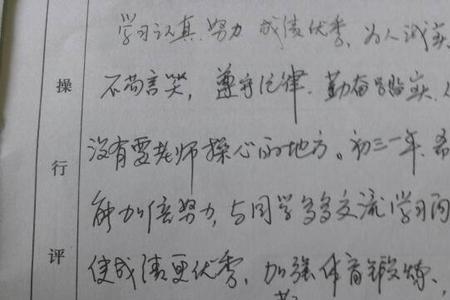 学习认真、努力 成绩优秀、为人诚实
不苟言笑，遵守纪律、勤奋踏实、
没有要老师操心的地方。初三一年、希
能加倍努力，与同学多多交流学习
使成绩更优秀、加强体育锻炼、
操
行
评